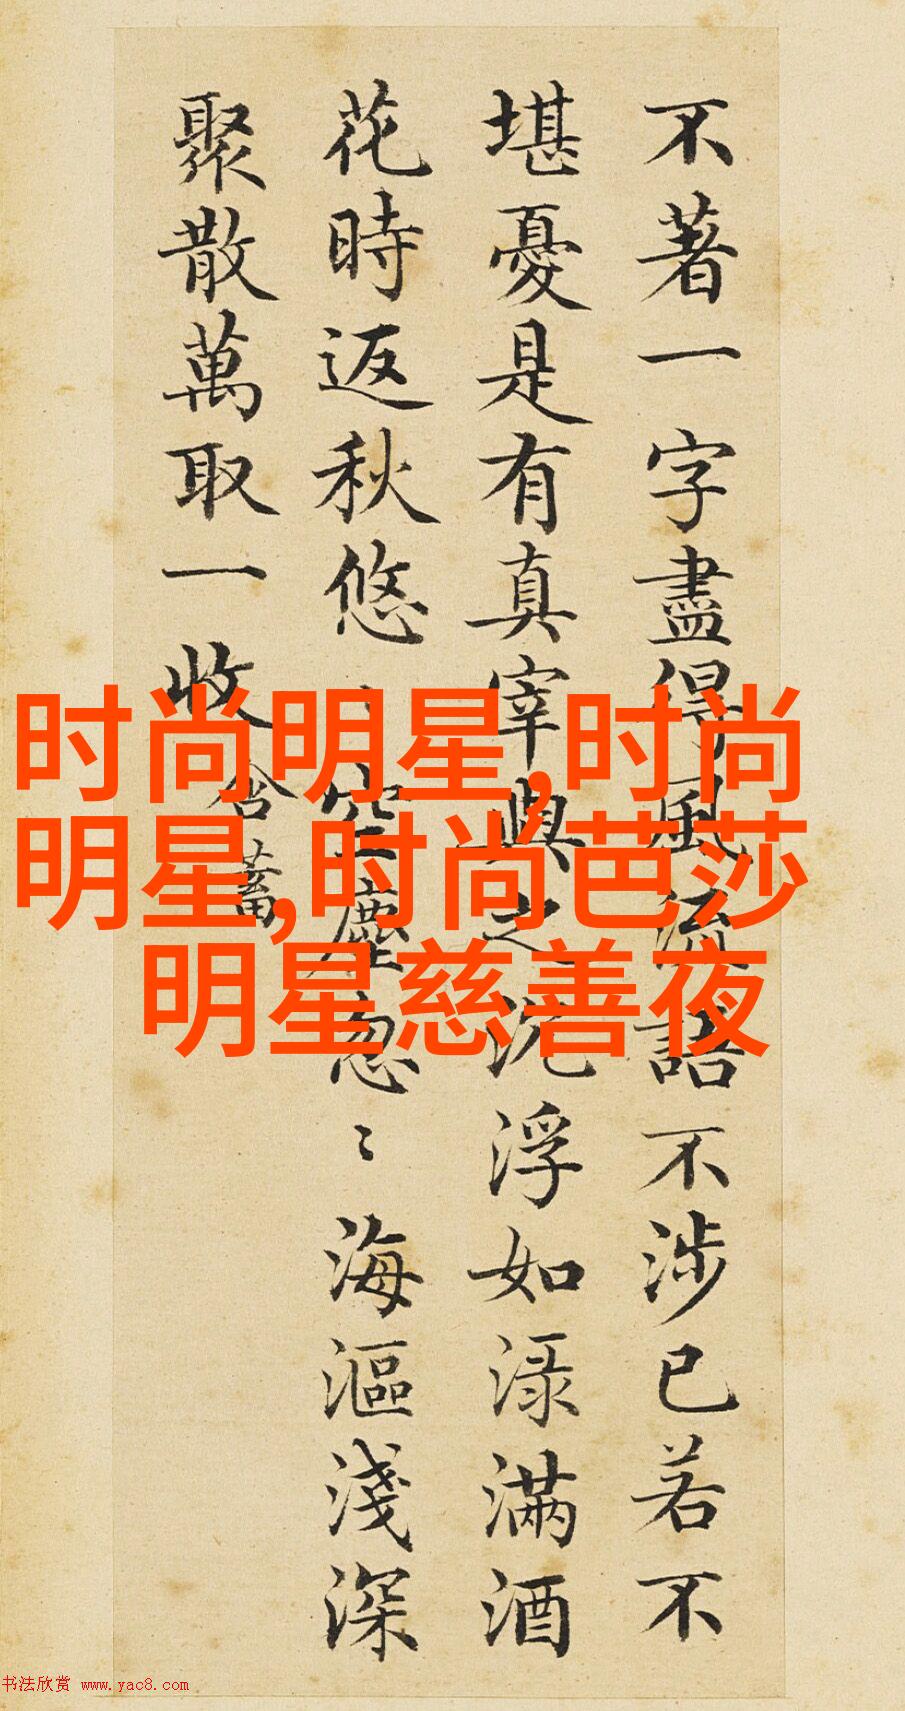 不著一字盡得風流語不涉已若不
堪憂是有真宰與之沉浮如淥滿酒
花時返秋悠〻空塵忽〻海漚淺深
聚散萬取一收
含蓄
时尚明星,时尚
明星,时尚芭莎
明星慈善夜
书法欣赏 www.yac8.com